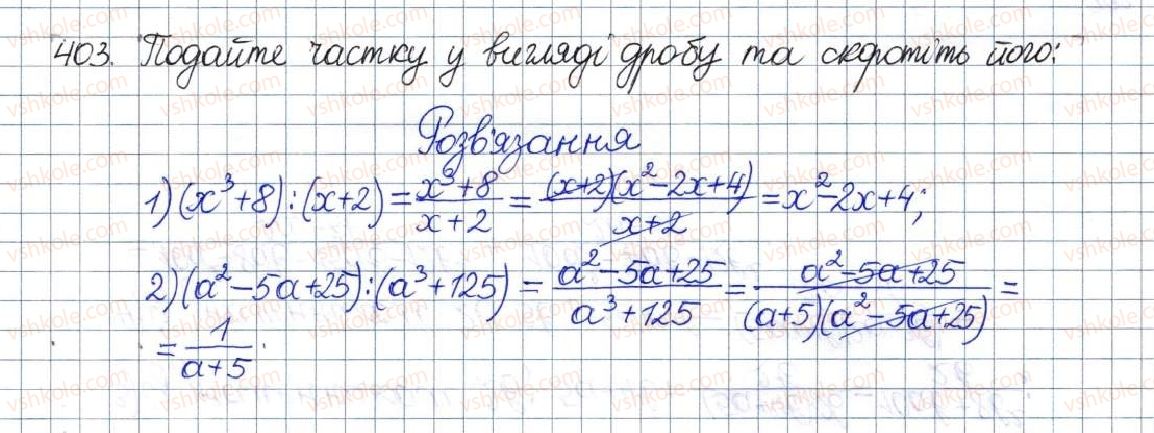 403. Подайте частку у вигляді дробу та скоротіть його:
Розв'язання
1) (x³+8):(x+2) = (x³+8)/(x+2) = ((x+2)(x²-2x+4))/(x+2) = x²-2x+4;
2) (a²-5a+25):(a³+125) = (a²-5a+25)/(a³+125) = (a²-5a+25)/((a+5)(a²-5a+25)) =
= 1/(a+5).